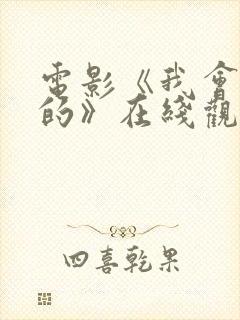 電影《我會
的》在綫觀
四喜乾果